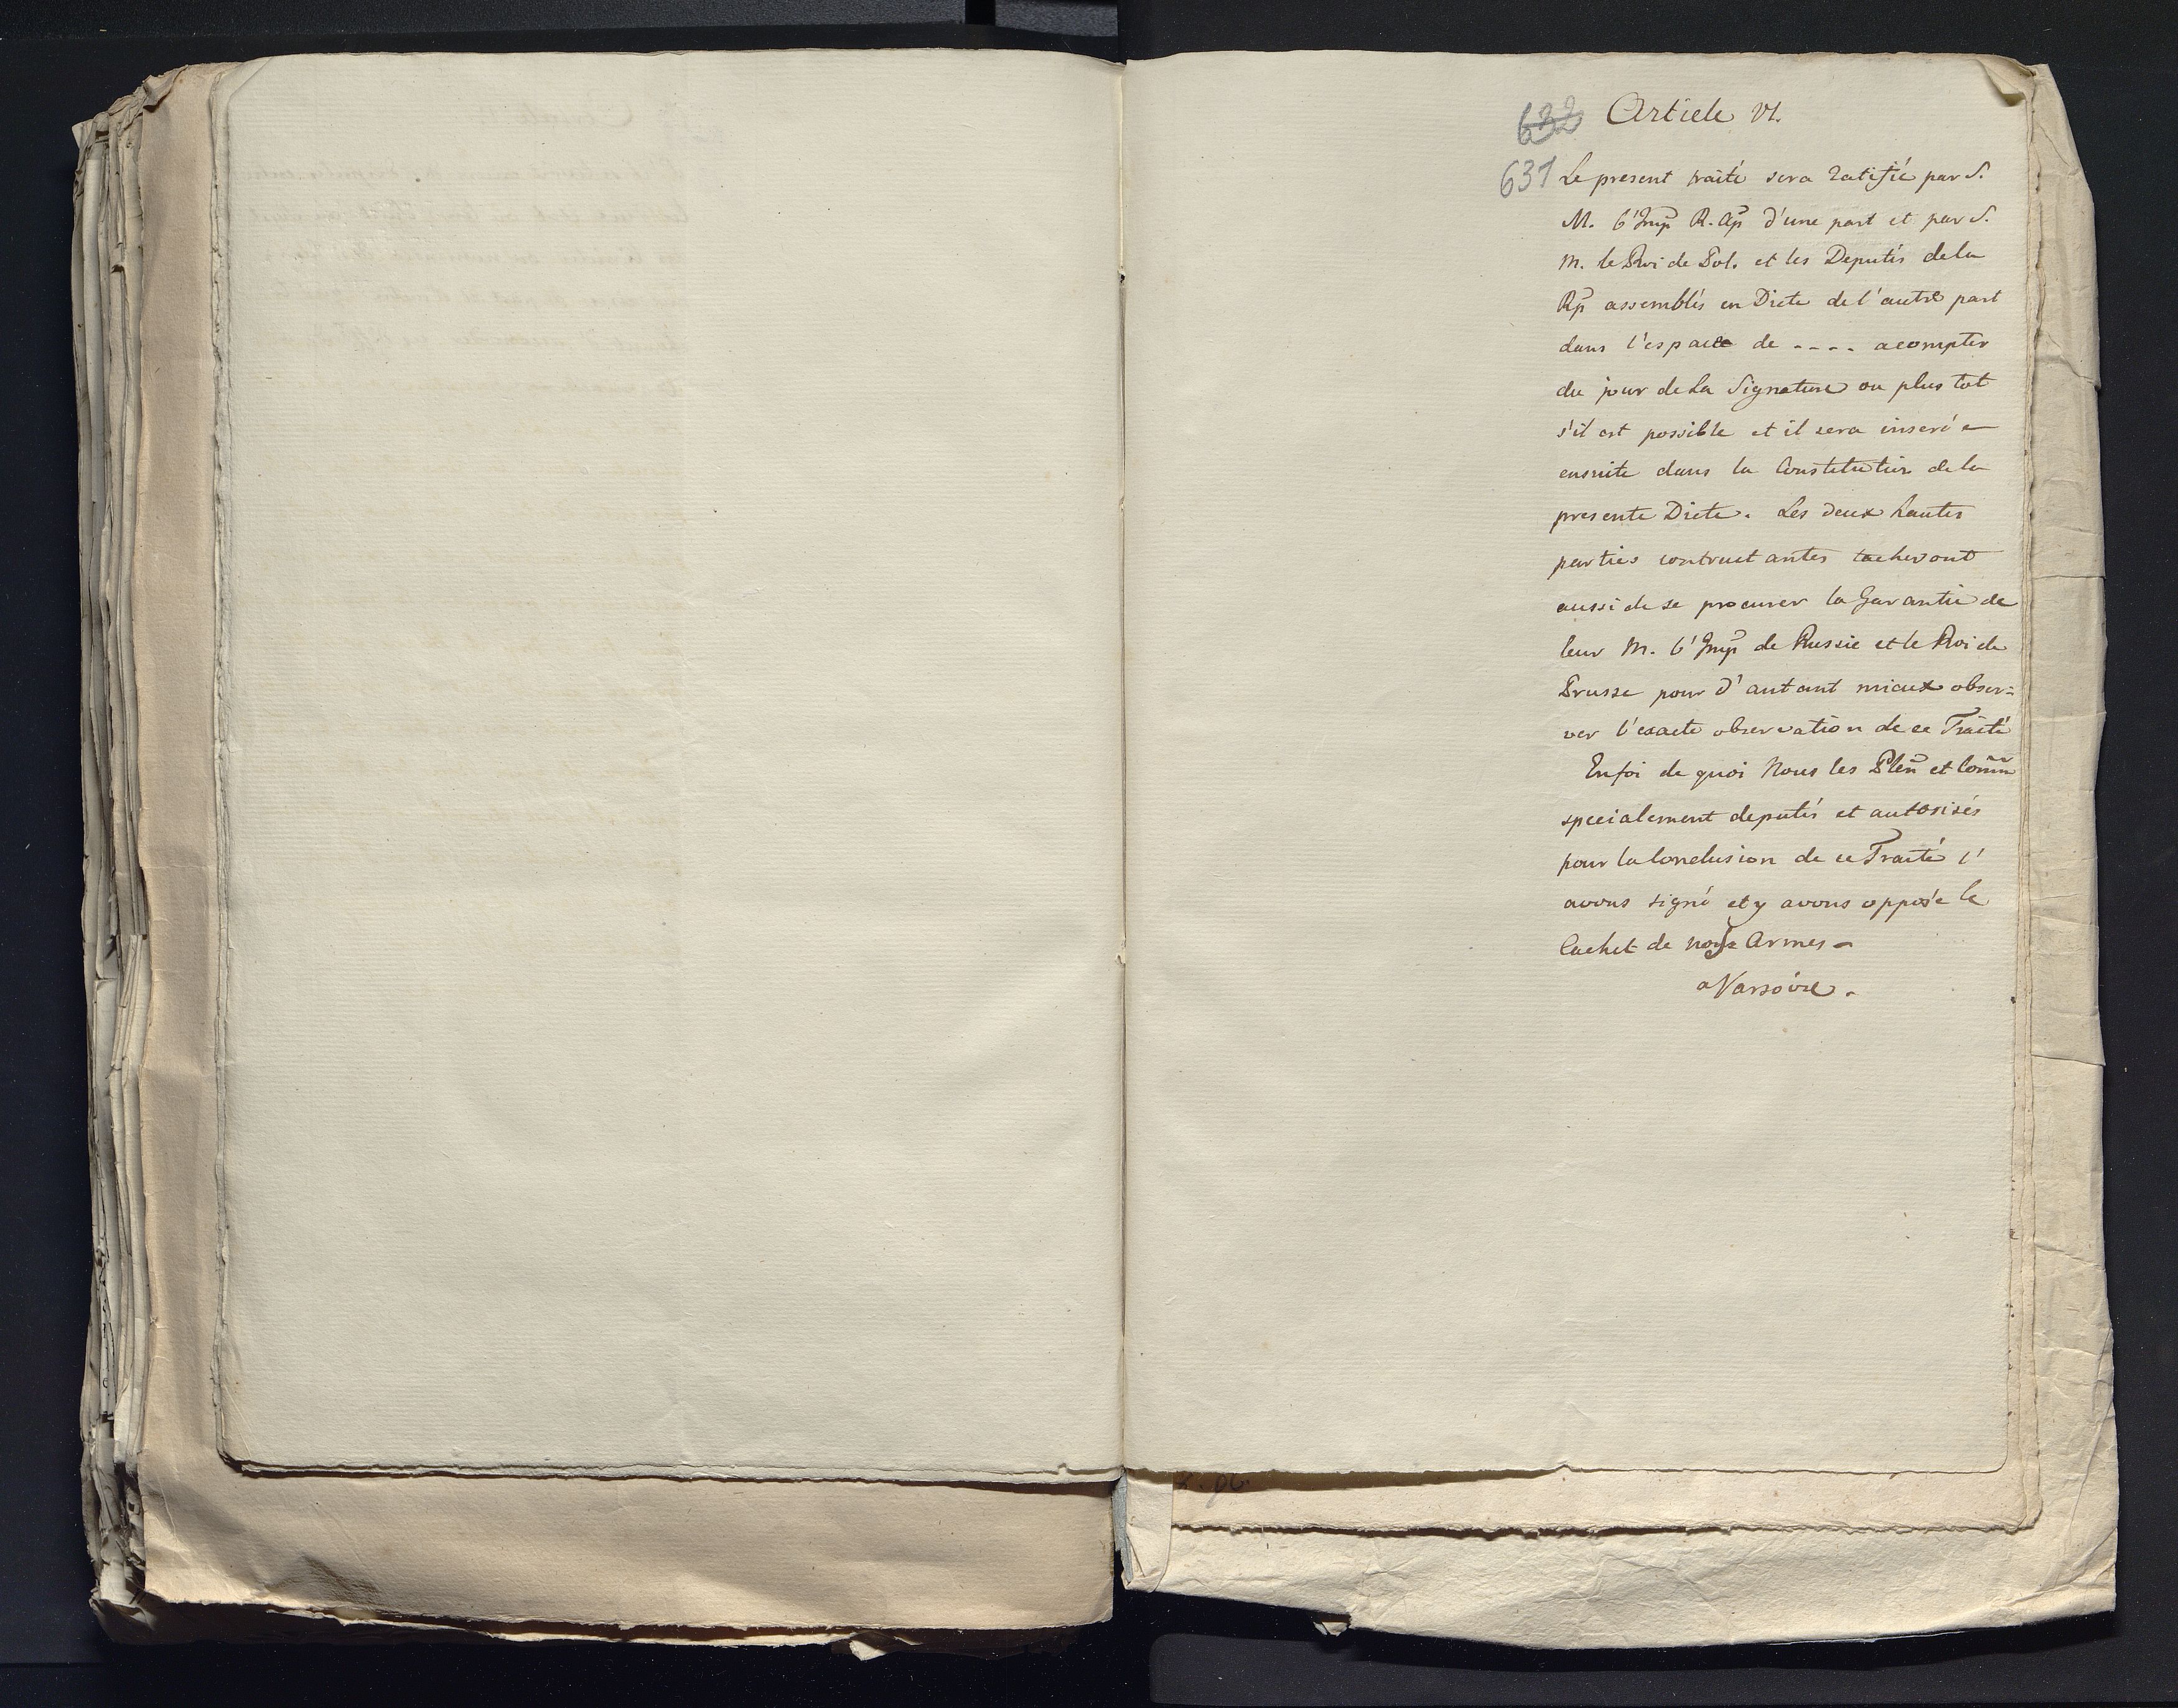 632 Article VI.
631 Le present traité sera ratifié par S.
M. l'Imp R. Ap d'une part et par S.
M. le Roi de Pol. et les Deputés de la
Rp assemblés en Diete de l'autre part
dans l'espace de - - - - acompter
du jour de la Signature ou plus tot
s'il est possible et il sera inseré
ensuite dans la Constitution de la
presente Diete. Les deux hautes
parties contractantes tacheront
aussi de se procurer la Garantie de
leur M. l'Imp de Russie et le Roi de
Prusse pour d'autant mieux obser=
ver l'exacte observation de ce Traité
En foi de quoi Nous les Plen et Comm
specialement deputés et autorisés
pour la Conclusion de ce Traité l'
avons signé et y avons opposé le
Cachet de nos Armes -
a Varsovie.